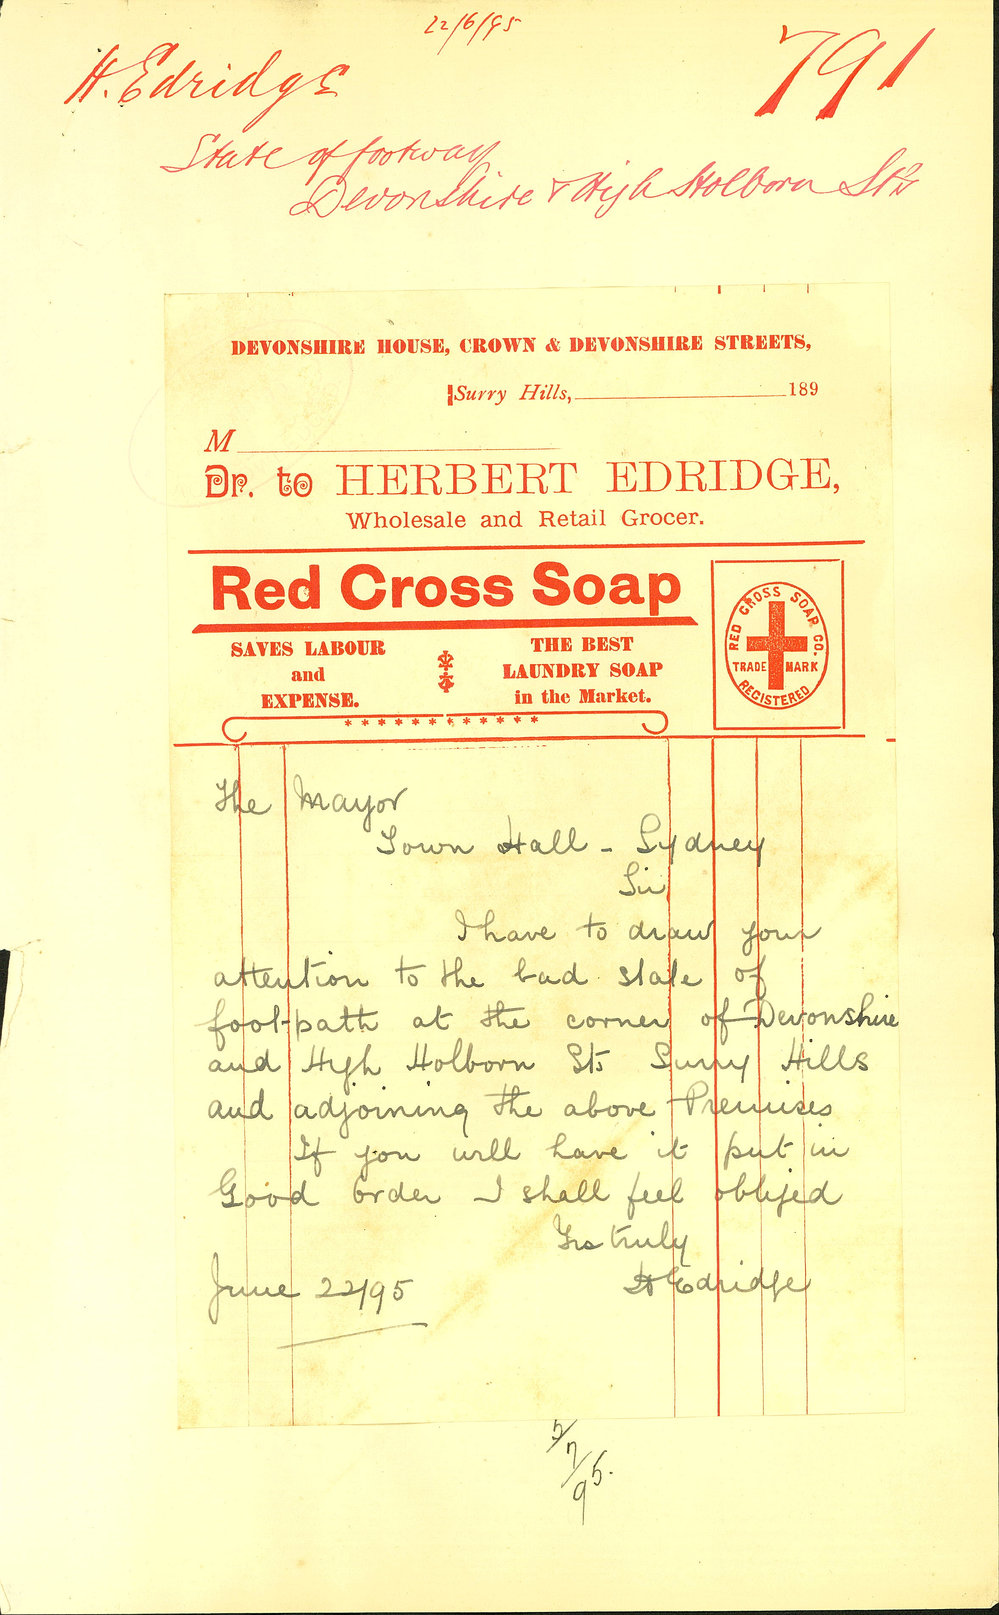 22/6/95
H. Edridge
791
State of footway
Devonshire & High Holborn Sts
DEVONSHIRE HOUSE, CROWN & DEVONSHIRE STREETS,
Surry Hills, 189
M
Dr. to HERBERT EDRIDGE,
Wholesale and Retail Grocer.
Red Cross Soap
SAVES LABOUR
and
EXPENSE.
THE BEST
LAUNDRY SOAP
in the Market.
RED CROSS SOAP CO.
TRADE MARK
REGISTERED
The Mayor
Town Hall - Sydney
Sir
I have to draw your
attention to the bad state of
foot-path at the corner of Devonshire
and High Holborn Sts Surry Hills
and adjoining the above Premises
If you will have it put in
Good order I shall feel obliged
Yrs truly
H Edridge
June 22/95
5/7/95.